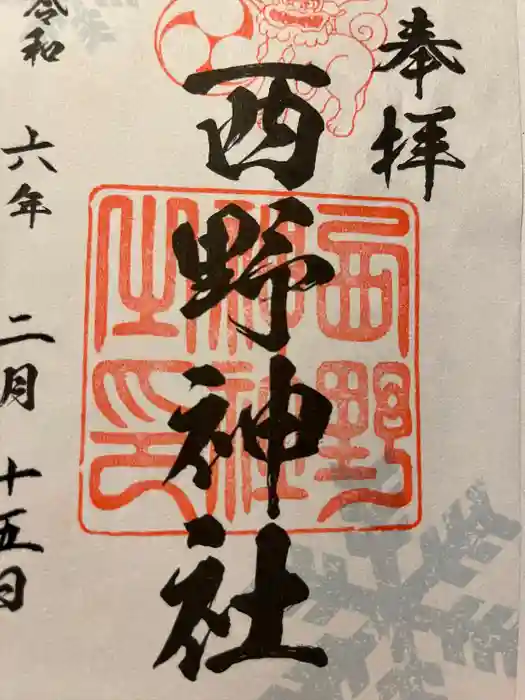 奉拝
西野神社
西野神社之印
令和六年二月十五日